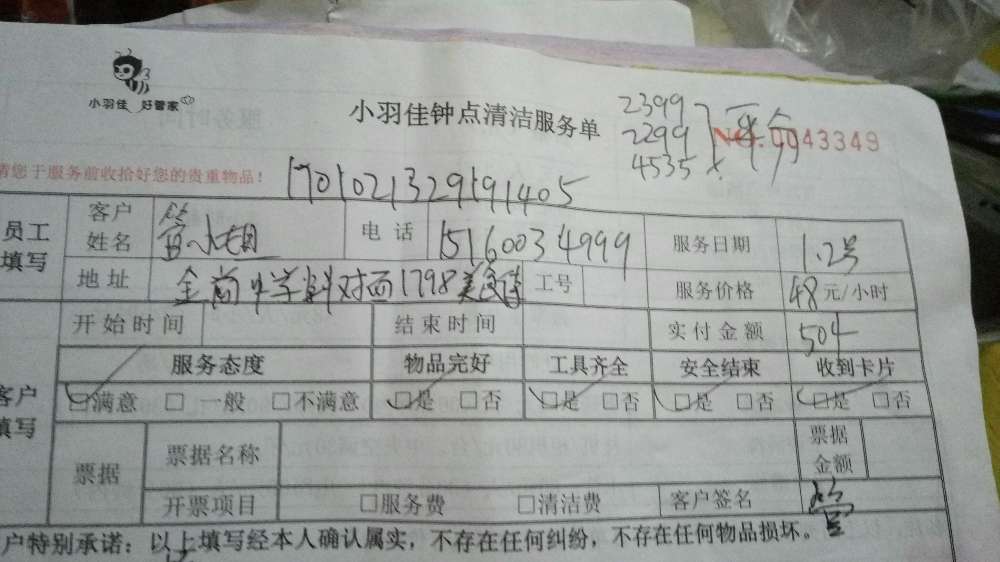 小羽佳 好管家
小羽佳钟点清洁服务单
2399
2299
4535
NO.0043349
请您于服务前收拾好您的贵重物品!
1701021329191405
员工填写 客户姓名 小姐 电话 15160034999 服务日期 1.2号
地址 金尚中学斜对面1798美食街 工号 服务价格 48元/小时
开始时间 结束时间 实付金额 504
服务态度 物品完好 工具齐全 安全结束 收到卡片
客户填写 □满意 □一般 □不满意 □是 □否 □是 □否 □是 □否 □是 □否
票据 票据名称 票据金额
开票项目 □服务费 □清洁费 客户签名
户特别承诺:以上填写经本人确认属实,不存在任何纠纷,不存在任何物品损坏。